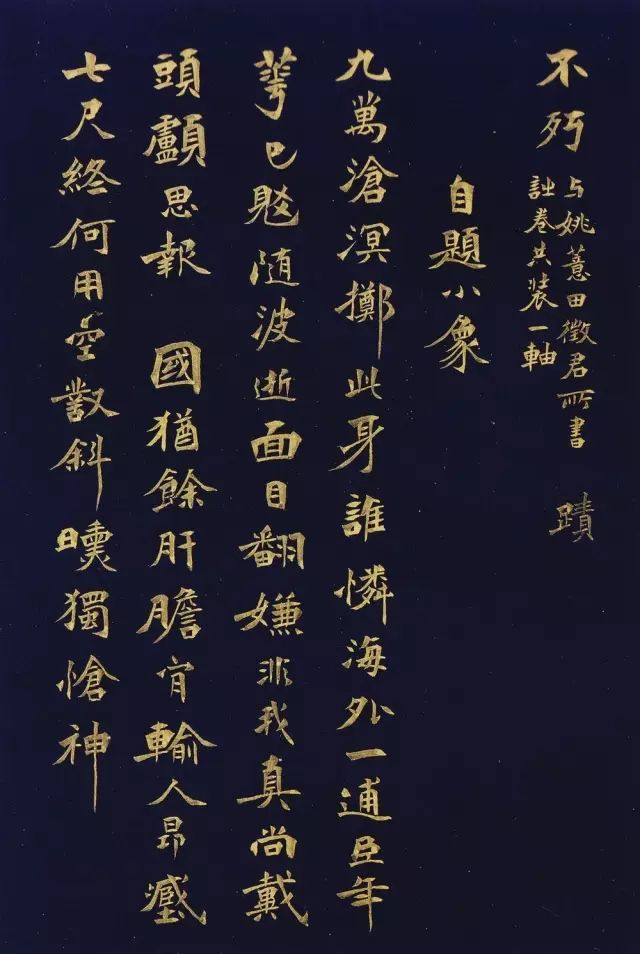 不朽
与姚薏田徵君所書
卷共装一軸
蹟
自題小象
九萬滄溟擲此身誰憐海外一逋臣年
華已随波逝面目翻嫌非我真尚戴
頭顱思報 國猶餘肝膽肯輸人昂藏
七尺終何用空對斜曛獨愴神